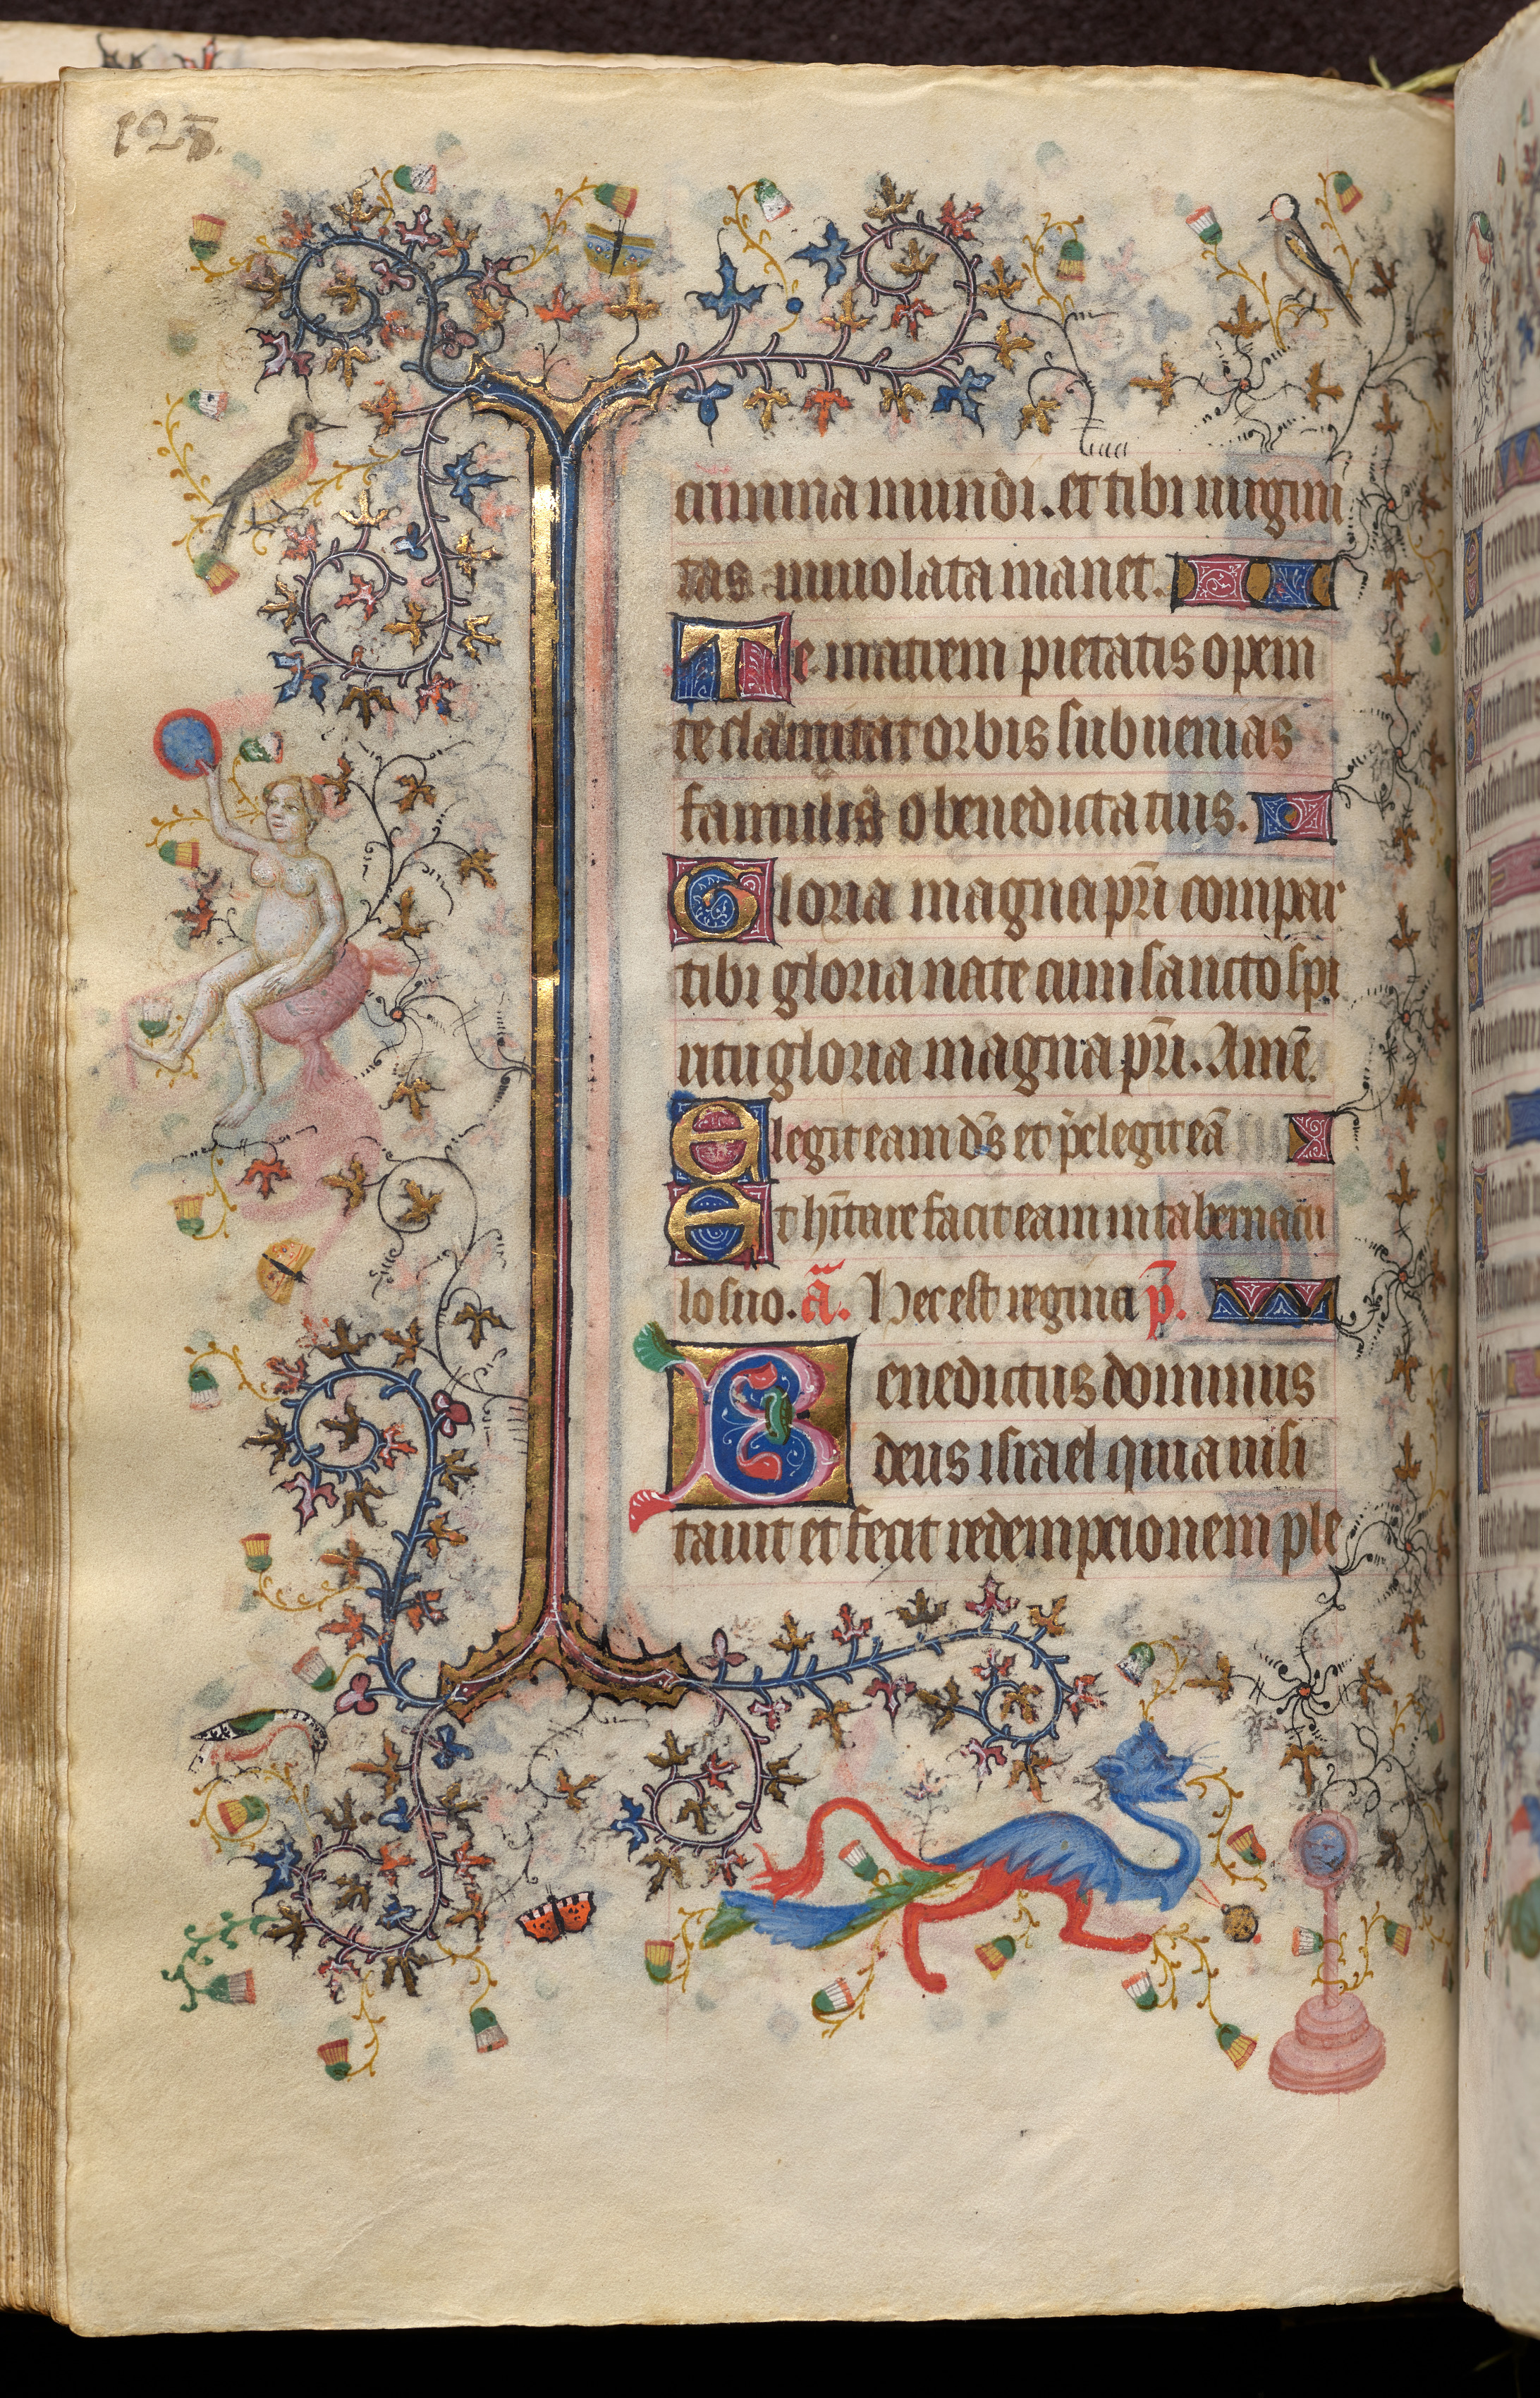 125.
crimina mundi. et tibi uirgini
tas inuiolata manet.
Te matrem pietatis opem
te clamitat orbis subuenias
famulis o benedicta tuis.
Gloria magna pr̄i compar
tibi gloria nate cum sancto spi
ritu gloria magna pr̄i. Amē.
Elegit eam d̄s et p̄elegit eā
Et hītare facit eam in tabernacu
lo suo. ā. Hec est regina p̄.
Benedictus dominus
deus israel quia uisi
tauit et fecit redempcionem ple